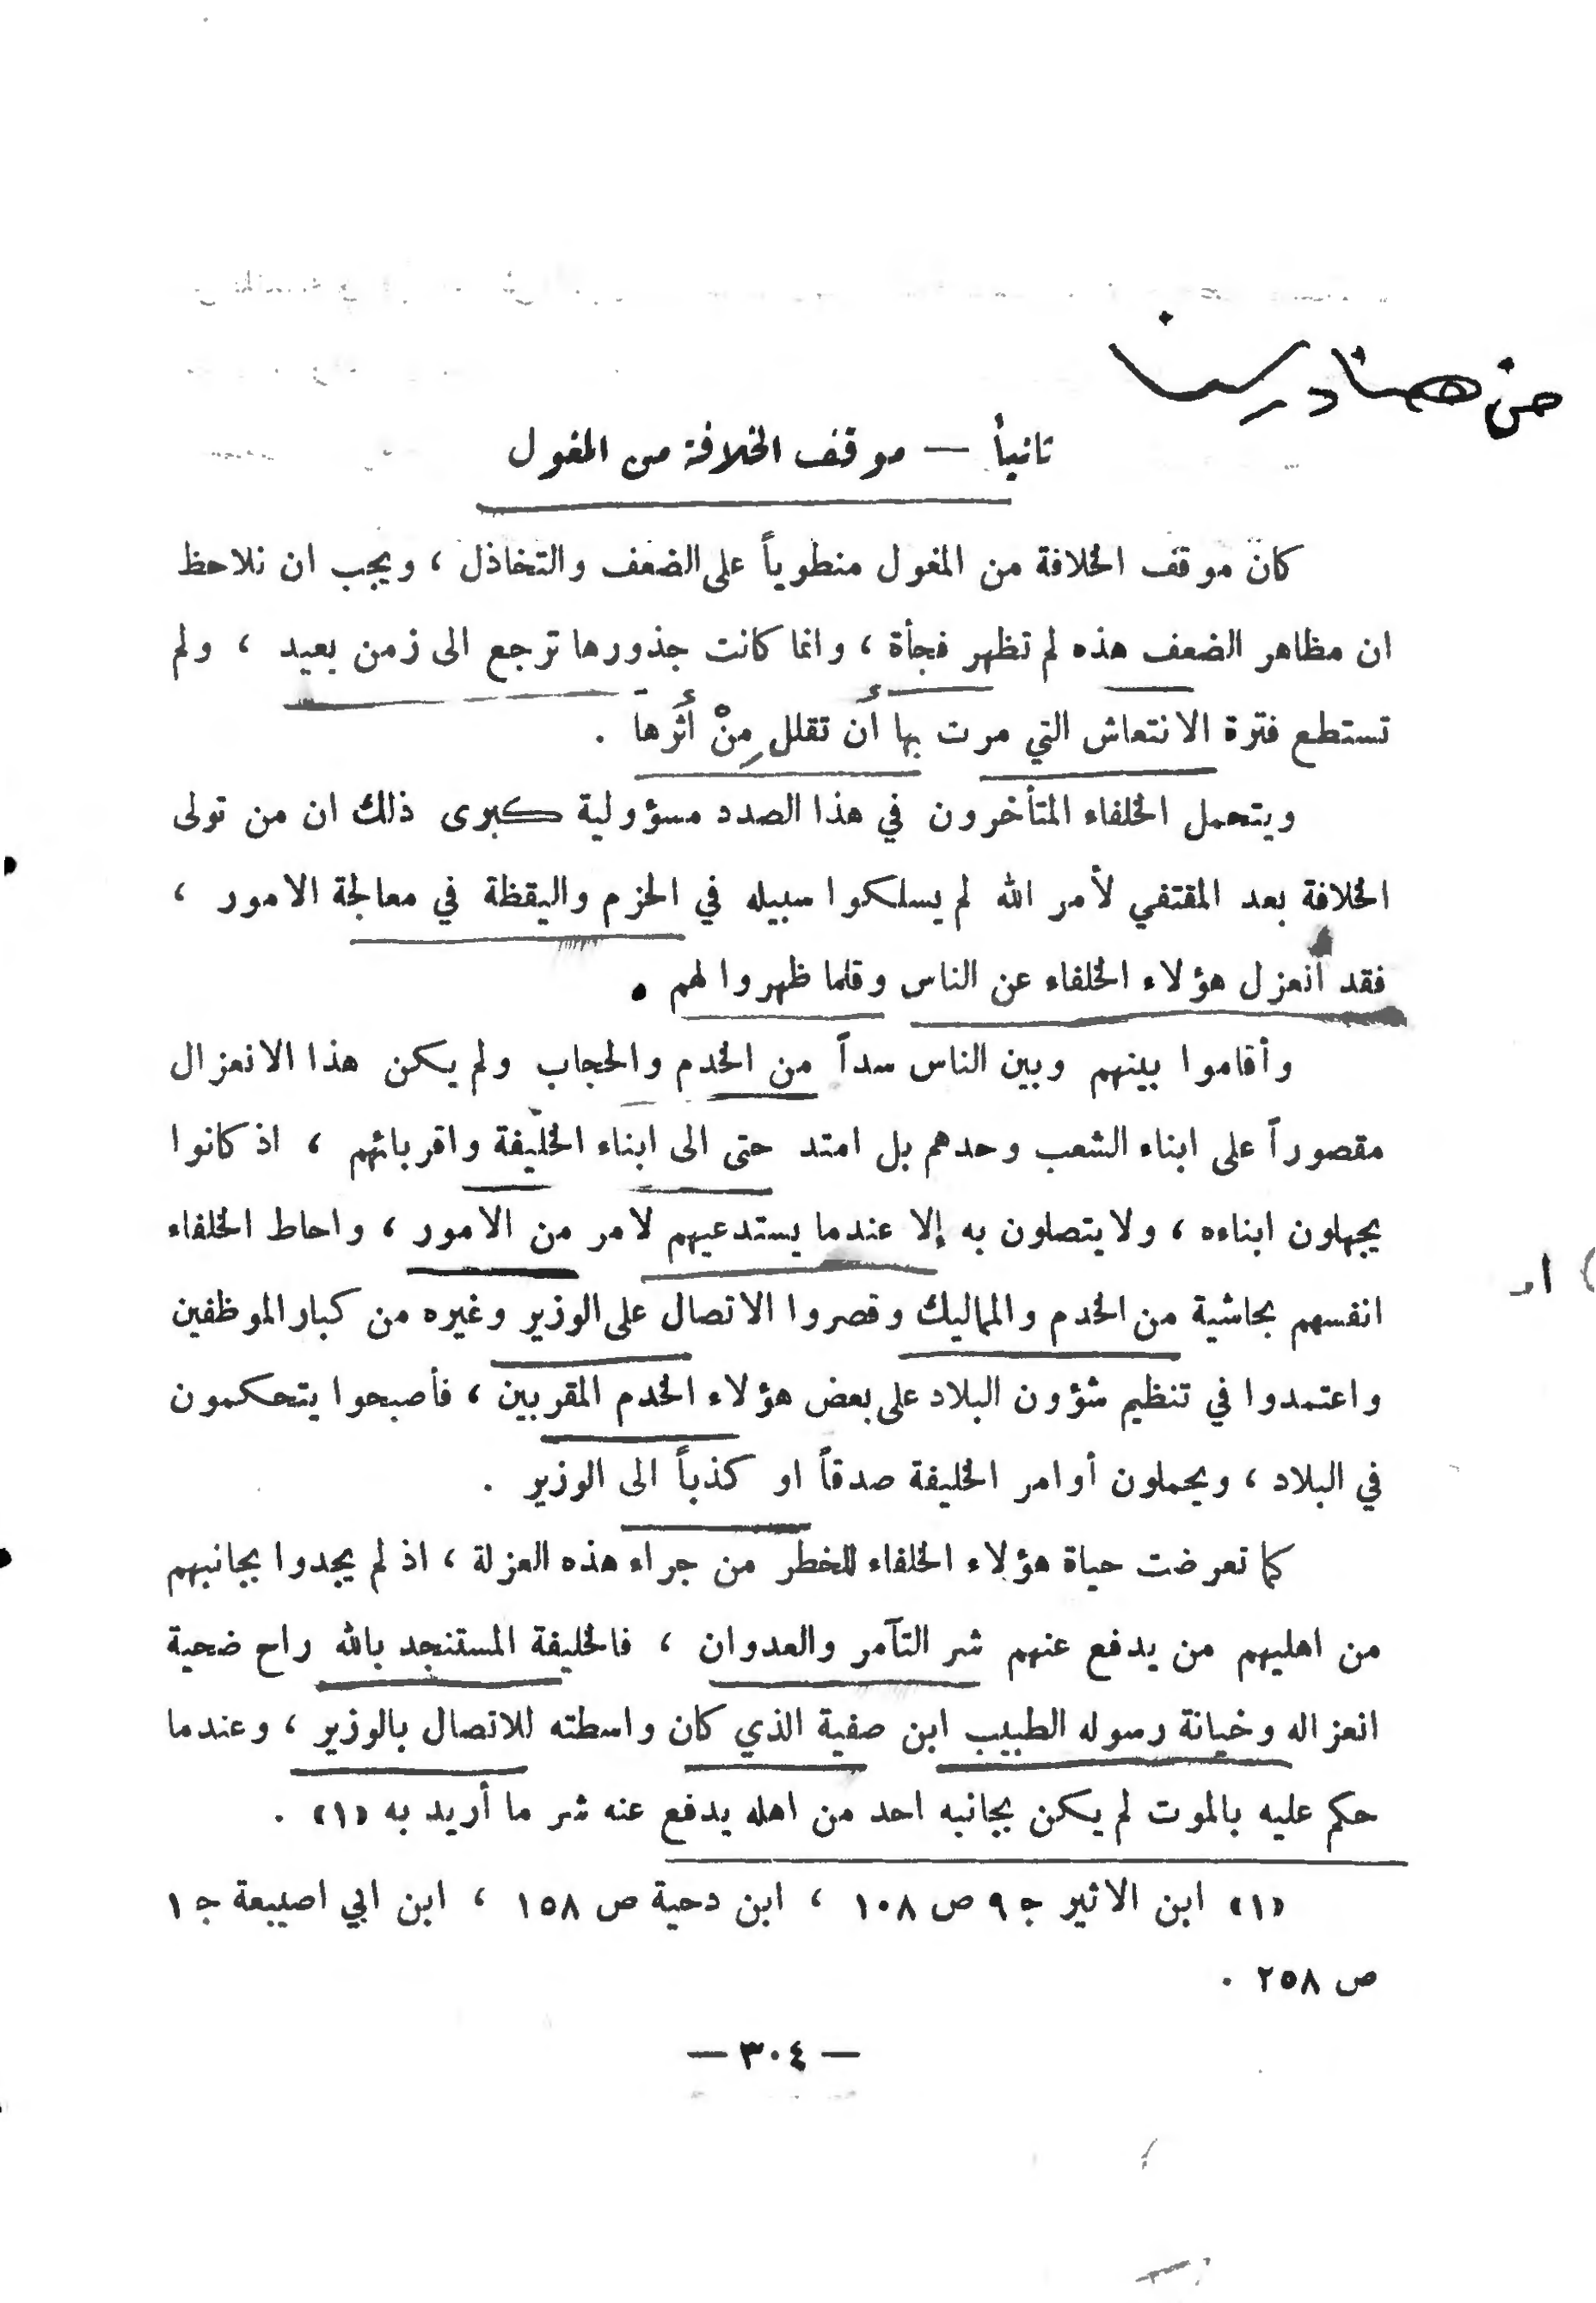 من مصادرنا
ثانياً — موقف الخلافة من المغول
كان موقف الخلافة من المغول منطوياً على الضعف والتخاذل ، ويجب ان نلاحظ
ان مظاهر الضعف هذه لم تظهر فجأة ، وانما كانت جذورها ترجع الى زمن بعيد ، ولم
تستطع فترة الانتعاش التي مرت بها أن تقلل مِنْ أثَرها .
ويتحمل الخلفاء المتأخرون في هذا الصدد مسؤولية كبرى ذلك ان من تولى
الخلافة بعد المقتفي لأمر الله لم يسلكوا سبيله في الحزم واليقظة في معالجة الامور ،
فقد انعزل هؤلاء الخلفاء عن الناس وقلما ظهروا لهم .
وأقاموا بينهم وبين الناس سداً من الخدم والحجاب ولم يكن هذا الانعزال
مقصوراً على ابناء الشعب وحدهم بل امتد حتى الى ابناء الخليفة واقربائهم ، اذ كانوا
يجهلون ابناءه ، ولا يتصلون به إلا عندما يستدعيهم لامر من الامور ، واحاط الخلفاء
انفسهم بحاشية من الخدم والمماليك وقصروا الاتصال على الوزير وغيره من كبار الموظفين
واعتمدوا في تنظيم شؤون البلاد على بعض هؤلاء الخدم المقربين ، فأصبحوا يتحكمون
في البلاد ، ويحملون أوامر الخليفة صدقاً او كذباً الى الوزير .
كما تعرضت حياة هؤلاء الخلفاء للخطر من جراء هذه العزلة ، اذ لم يجدوا بجانبهم
من اهليهم من يدفع عنهم شر التآمر والعدوان ، فالخليفة المستنجد بالله راح ضحية
انعزاله وخيانة رسوله الطبيب ابن صفية الذي كان واسطته للاتصال بالوزير ، وعندما
حكم عليه بالموت لم يكن بجانبه احد من اهله يدفع عنه شر ما أريد به «١» .
«١» ابن الاثير ج ٩ ص ١٠٨ ، ابن دحية ص ١٥٨ ، ابن ابي اصيبعة ج ١
ص ٢٥٨ .
— ٣٠٤ —